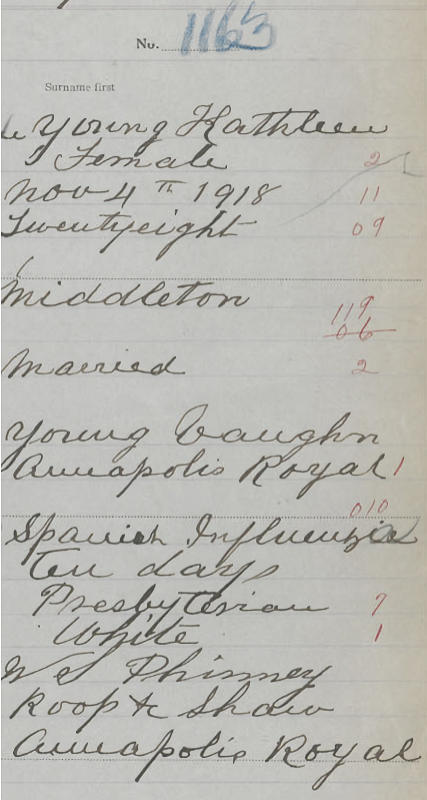 No. 1163
Surname first
Young Kathleen
Female 2
Nov 4th 1918 11
Twentyeight 09
Middleton
119
06
Married 2
Young Vaughn
Annapolis Royal 1
010
Spanish Influenzia
ten days
Presbyterian 7
White 1
Phinney
Roop & Shaw
Annapolis Royal